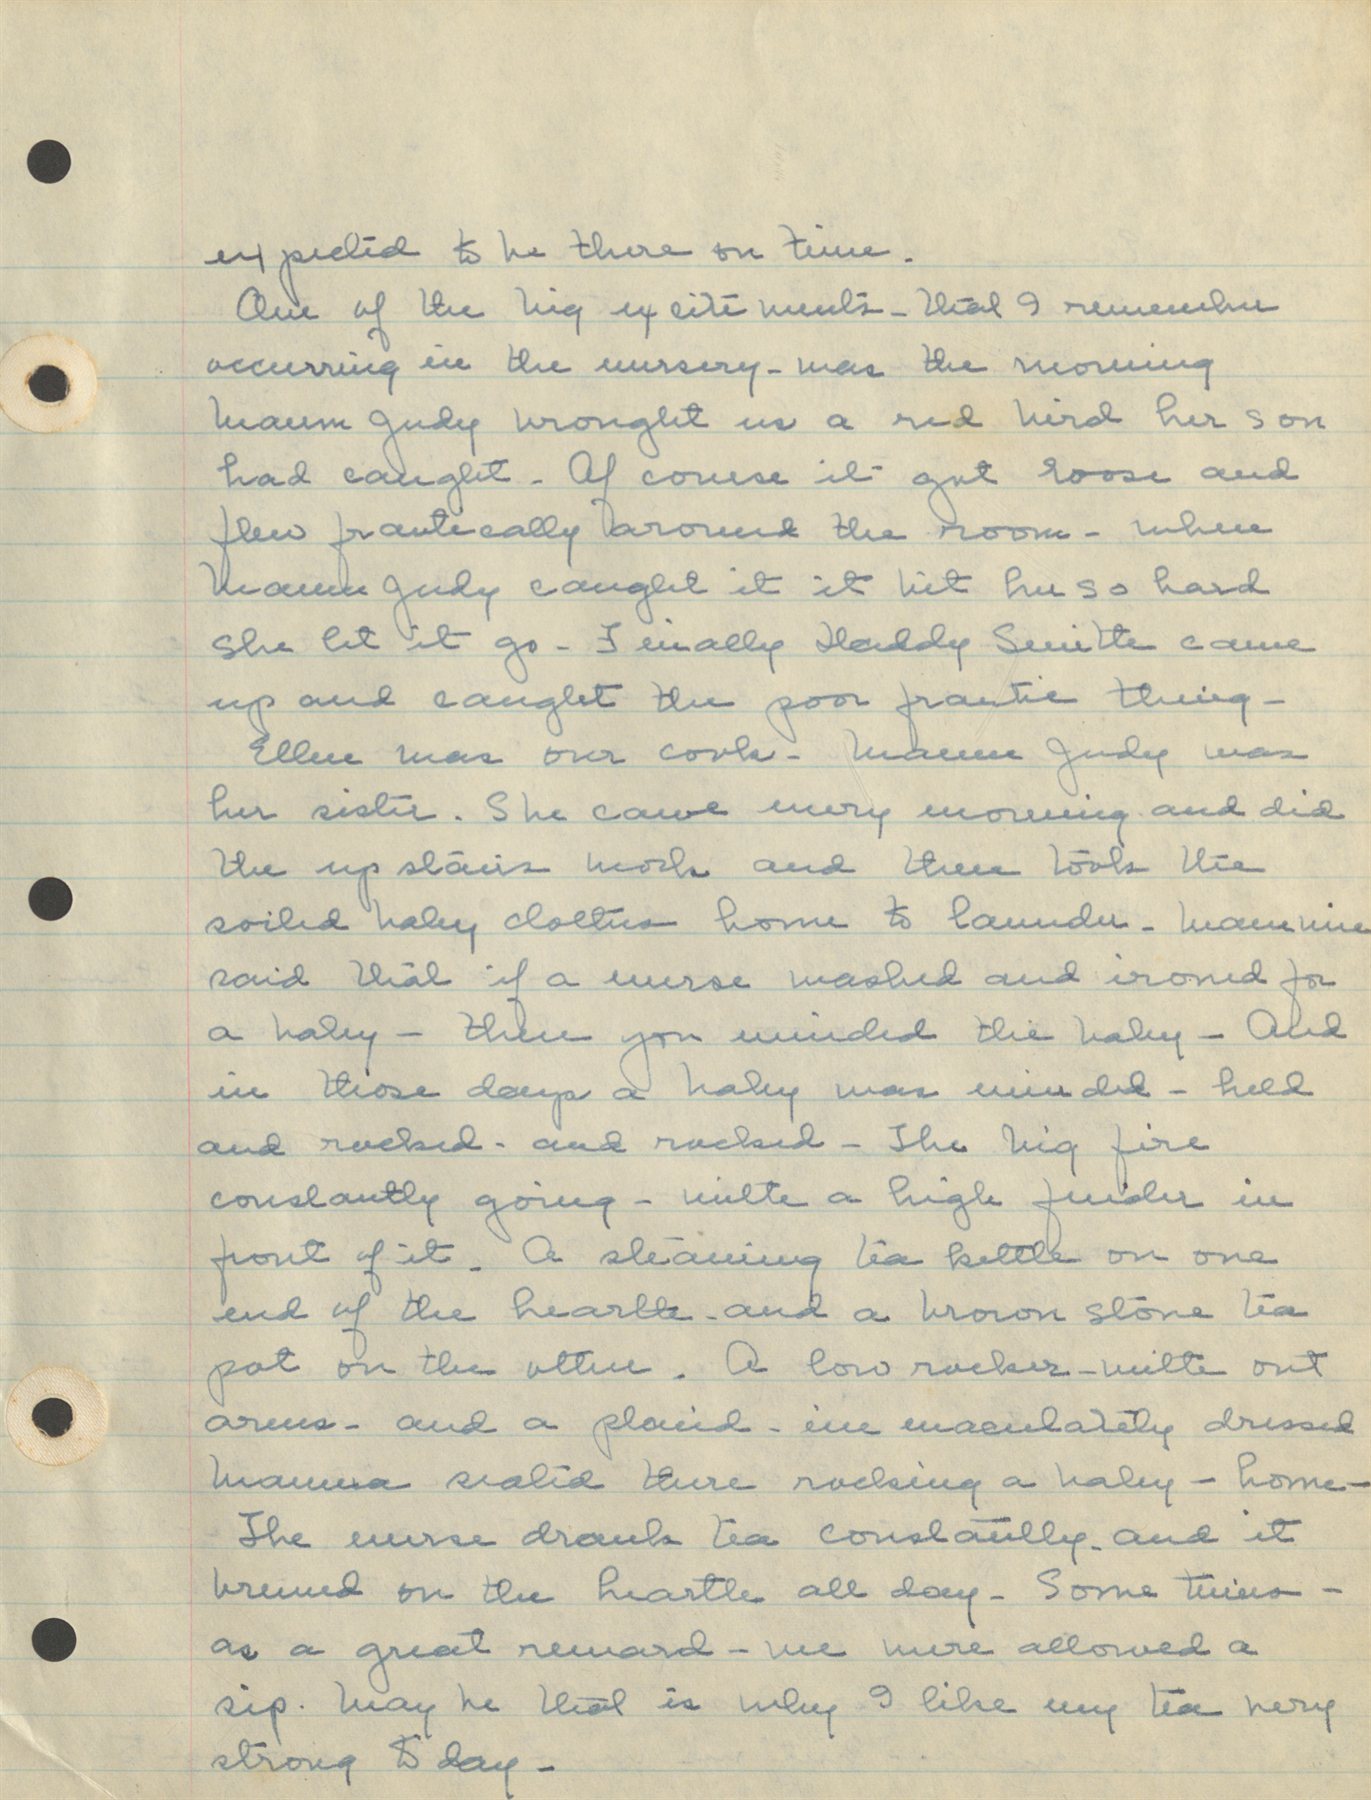 expected to be there on time.
One of the big excitements - that I remember
occurring in the nursery - was the morning
Maum Judy brought us a red bird her son
had caught - Of course it got loose and
flew frantically around the room - when
Maum Judy caught it it bit her so hard
she let it go - Finally Daddy Smith came
up and caught the poor frantic thing -
Ellen was our cook - Maum Judy was
her sister. She came every morning and did
the up stairs work and then took the
soiled baby clothes home to launder -
said that if a nurse washed and ironed for
a baby - then you minded the baby - And
in those days a baby was minded - held
and rocked - and rocked - The big fire
constantly going - with a high fender in
front of it. A steaming tea kettle on one
end of the hearth - and a brown stone tea
pot on the other. A low rocker - with out
arms - and a placid - immaculately dressed
seated there rocking a baby -
The nurse drank tea constantly - and it
brewed on the hearth all day - Some times -
as a great reward - we were allowed a
sip. May be that is why I like my tea very
strong to day -